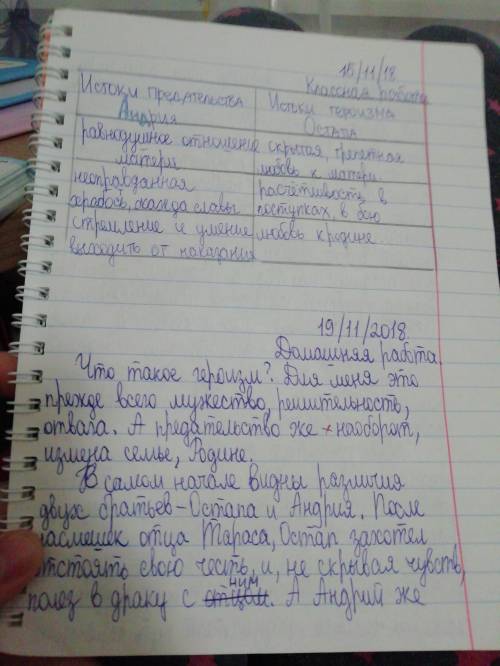 15/11/18
Классная работа
Истоки предательства Андрия
Истоки героизма Остапа
равнодушное отношение матери
скрытая, трепетная любовь к матери
неоправданная храбрость, жажда славы
расчётливость в поступках, в бою
стремление и умение выходить от наказания
любовь к родине
19/11/2018.
Домашняя работа.
Что такое героизм? Для меня это
прежде всего мужество, решительность,
отвага. А предательство же - наоборот,
измена семье, Родине.
В самом начале видны различия
двух братьев-Остапа и Андрия. После
насмешек отца Тараса, Остап захотел
отстоять свою честь, и, не скрывая чувств,
полез в драку с ним. А Андрий же